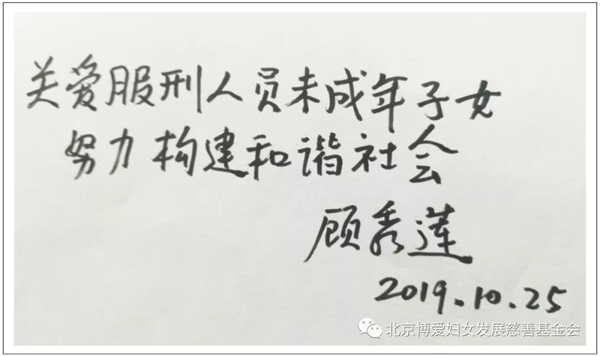 关爱服刑人员未成年子女
努力构建和谐社会
顾秀莲
2019.10.25
北京博爱妇女发展慈善基金会